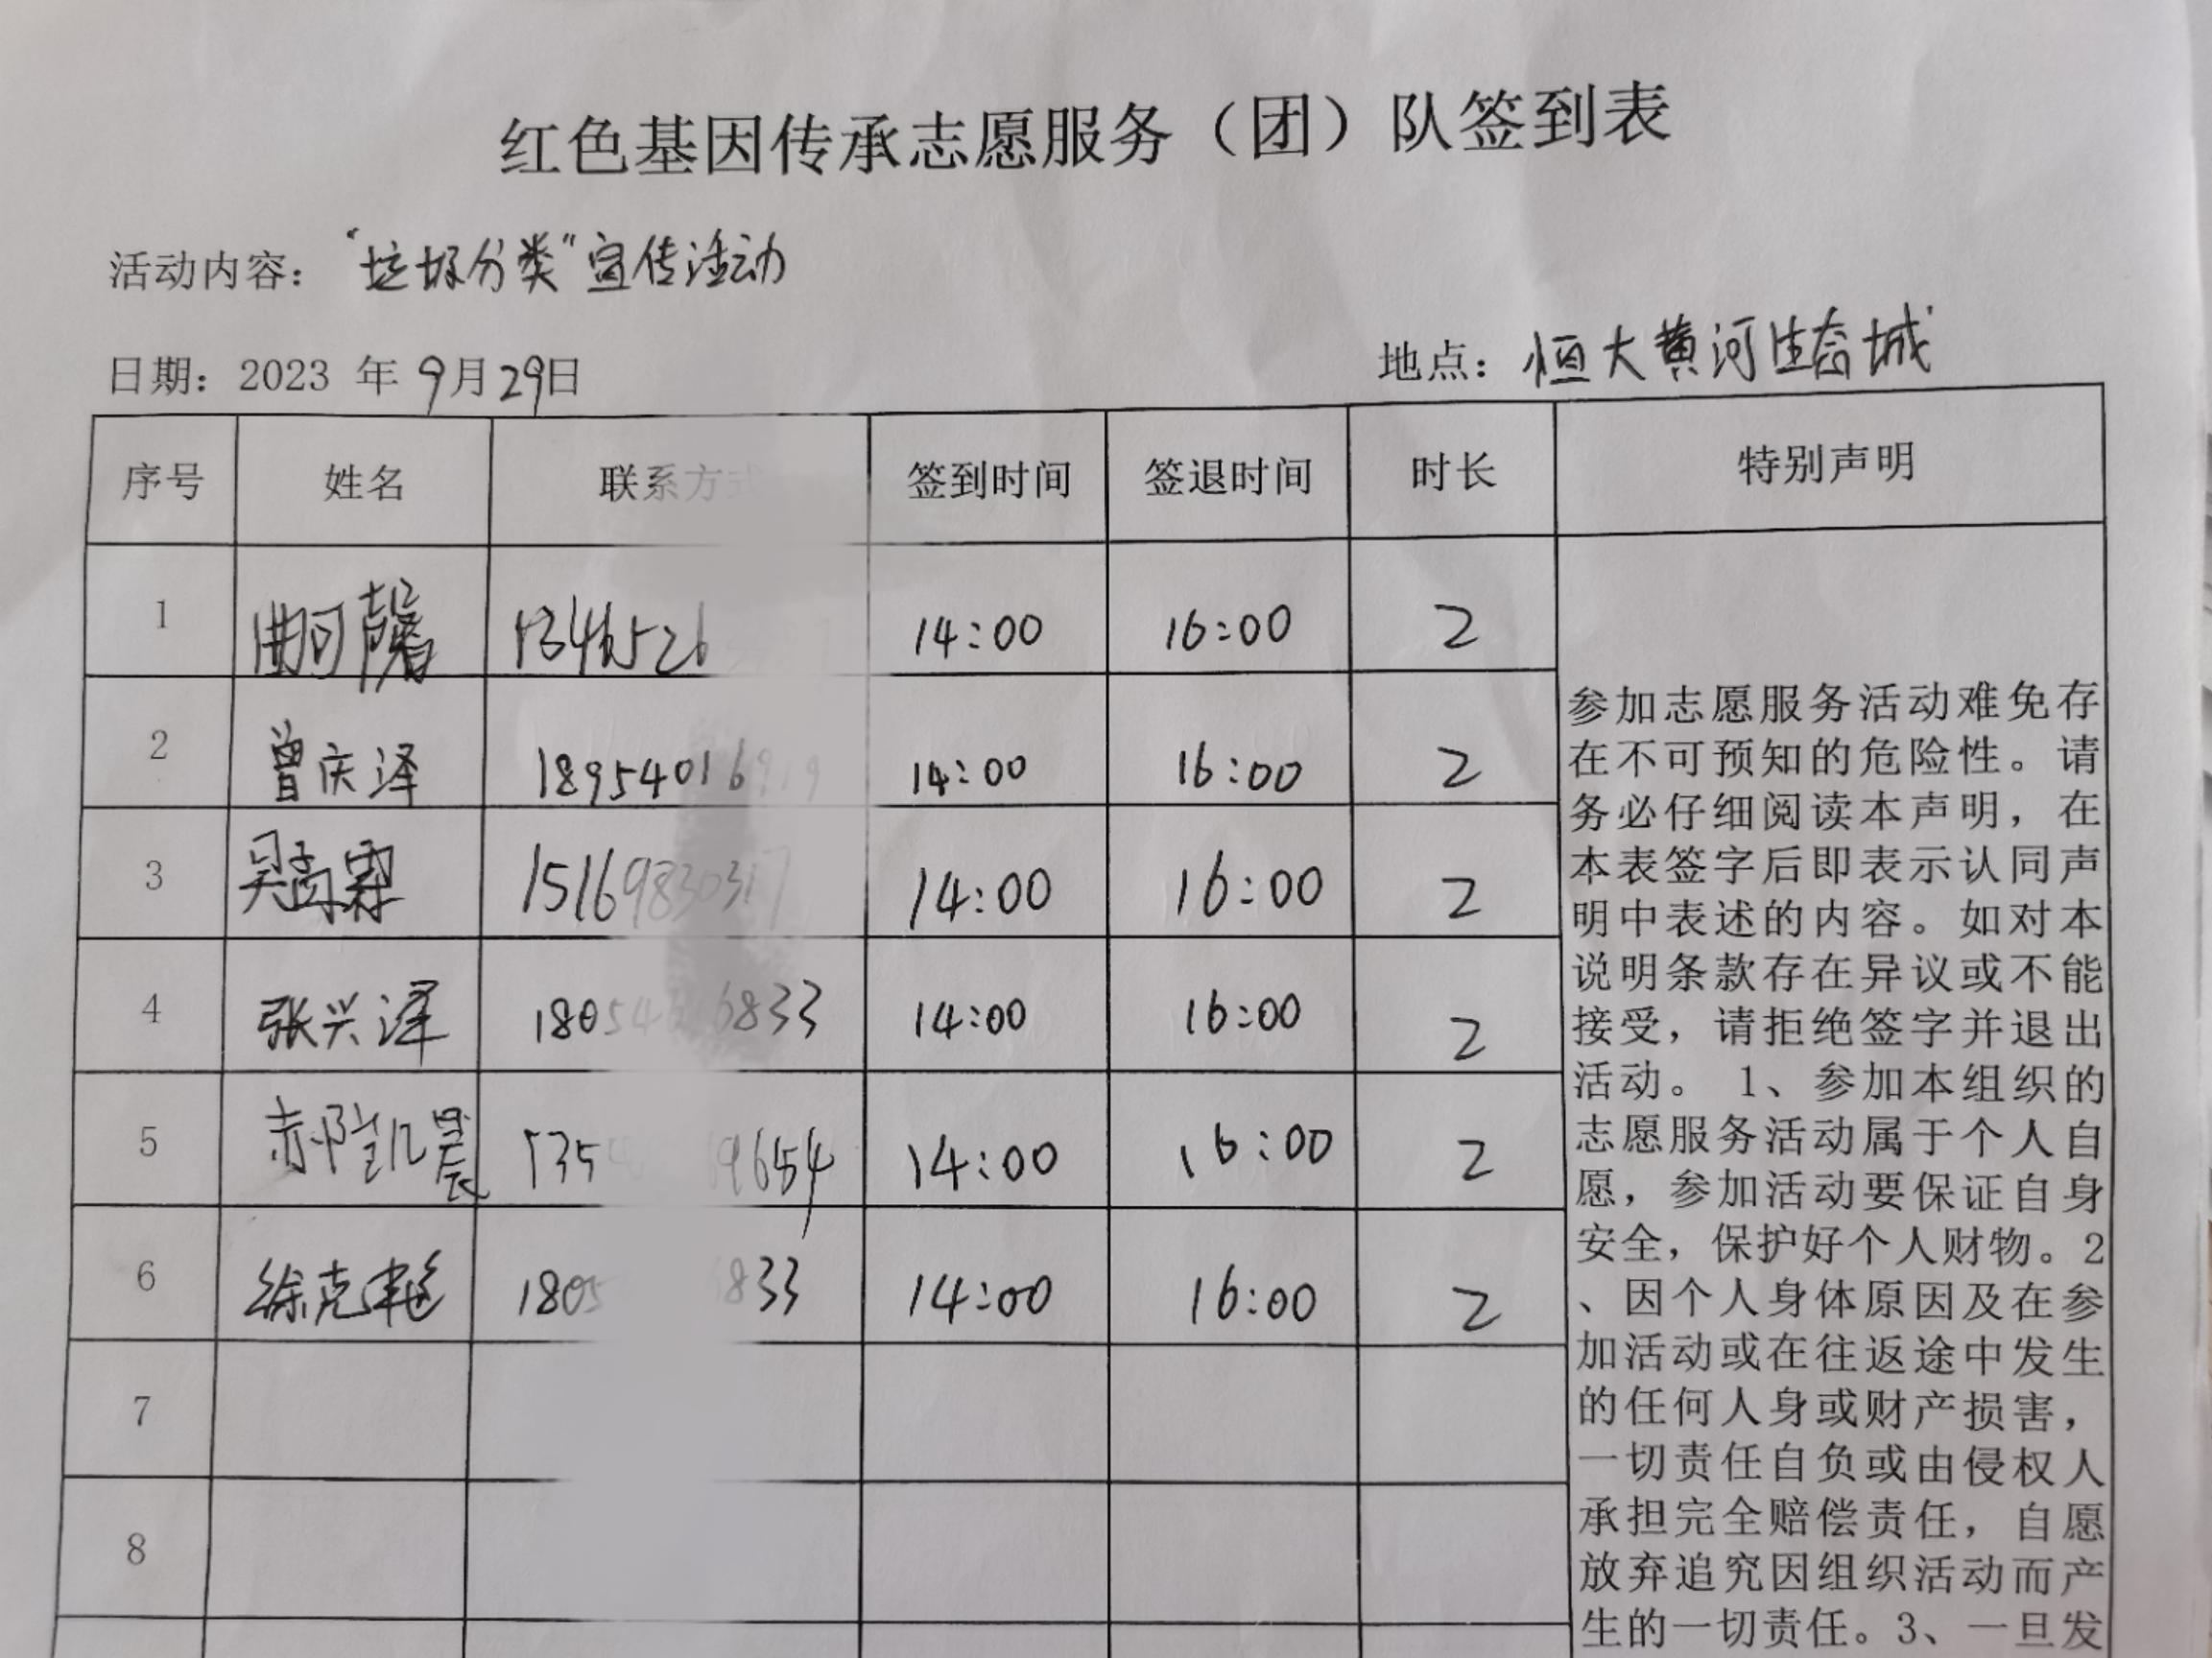 红色基因传承志愿服务（团）队签到表
活动内容：“垃圾分类”宣传活动
日期：2023 年 9月29日
地点：恒大黄河生态城
序号 姓名 联系方式 签到时间 签退时间 时长 特别声明
1 14:00 16:00 2
2 曾庆泽 14:00 16:00 2
3 14:00 16:00 2
4 张兴泽 14:00 16:00 2
5 14:00 16:00 2
6 徐克艳 14:00 16:00 2
7
8
参加志愿服务活动难免存
在不可预知的危险性。请
务必仔细阅读本声明，在
本表签字后即表示认同声
明中表述的内容。如对本
说明条款存在异议或不能
接受，请拒绝签字并退出
活动。 1、参加本组织的
志愿服务活动属于个人自
愿，参加活动要保证自身
安全，保护好个人财物。2
、因个人身体原因及在参
加活动或在往返途中发生
的任何人身或财产损害，
一切责任自负或由侵权人
承担完全赔偿责任，自愿
放弃追究因组织活动而产
生的一切责任。3、一旦发